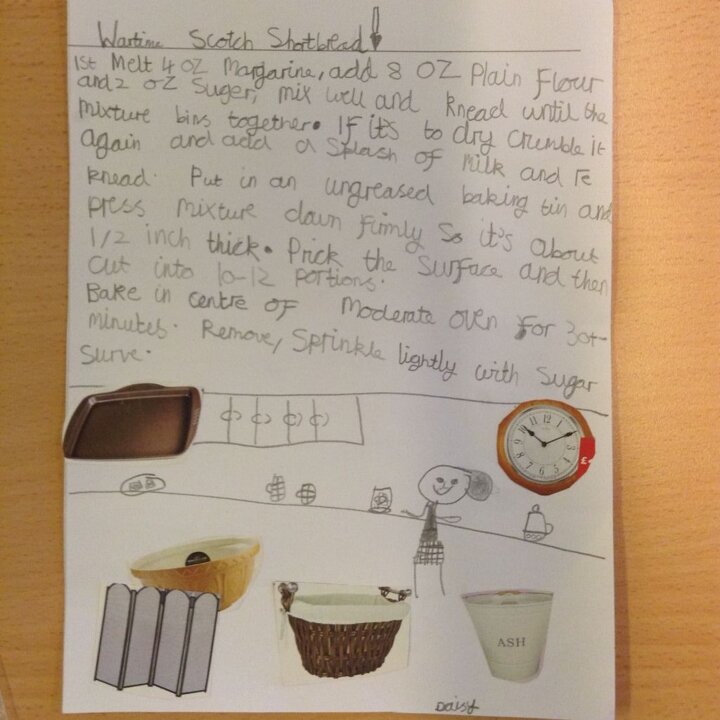 Wartime Scotch Shortbread
1st Melt 4 OZ Margarine, add 8 OZ Plain Flour
and 2 OZ Suger, mix well and knead until the
mixture bins together. If it's to dry crumble it
again and add a Splash of Milk and re
knead. Put in an ungreased baking tin and
press mixture down firmly so it's about
1/2 inch thick. Prick the surface and then
cut into 10-12 portions.
Bake in centre of moderate oven for 30+
minutes. Remove, Sprinkle lightly with Sugar
Surve.
12
11
1
10
2
9
3
8
4
7
5
6
£
ASH
Daisy